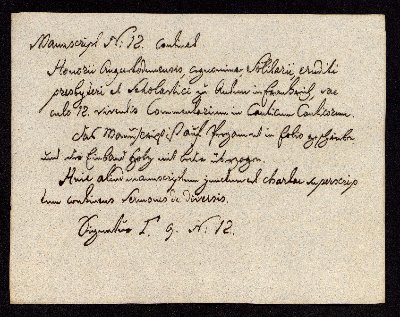 Manuscript N: 12. continet
Honorii Augustodunensis, cognomine Solitarii eruditi
presbyteri et Scholastici zu Autun in frankreich, sae
culo 12. viventis Commentarium in Canticum Canticorum.
das Manuscript ist auf Pergament in folio geschrieben
und der Einband Holz mit leder überzogen.
Huic aliud manuscriptum junctum est chartae superscrip
tum continens Sermones de diversis.
Signatur I. 9. N: 12.